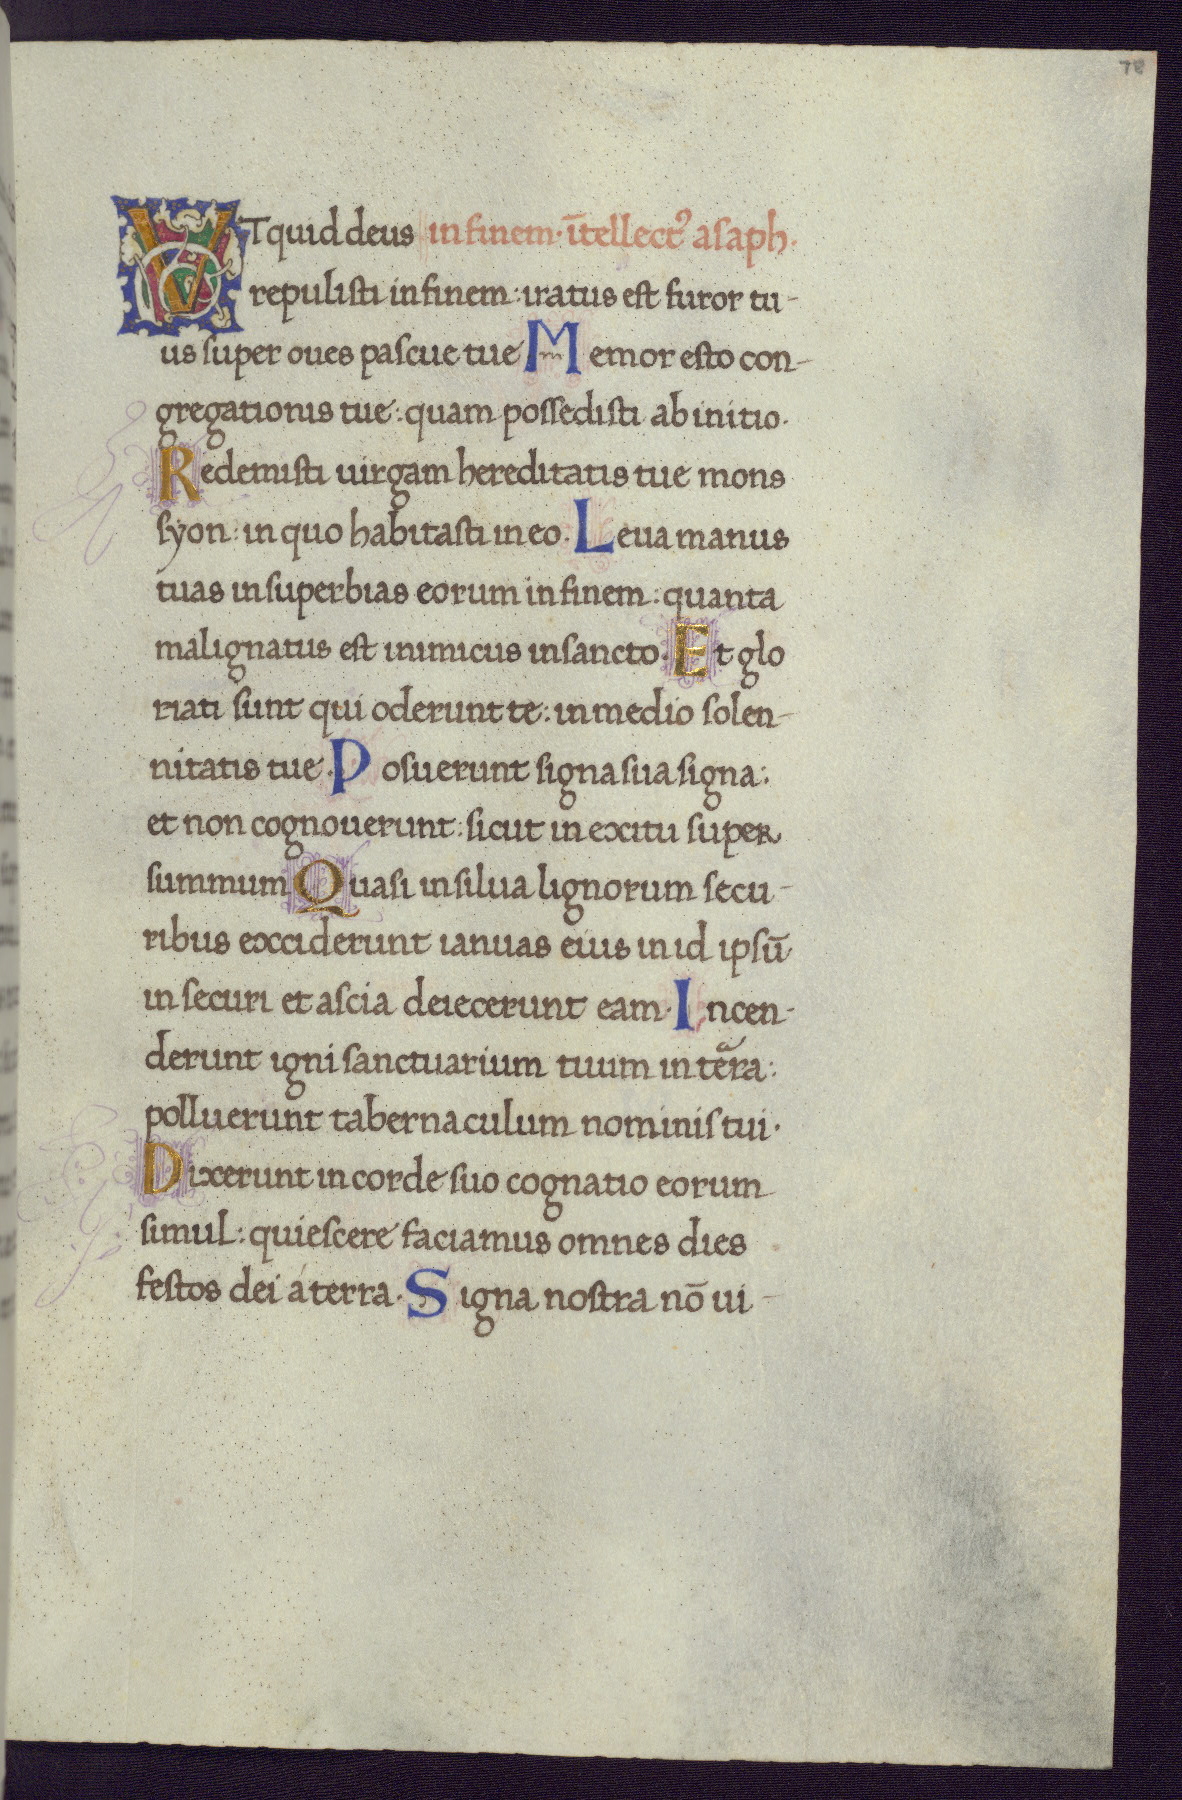 78
VT quid deus in finem· ītellect᾽ asaph·
repulisti in finem: iratus est furor tu-
us super oues pascue tue Memor esto con-
gregationis tue: quam possedisti ab initio·
Redemisti uirgam hereditatis tue mons
syon: in quo habitasti in eo· Leua manus
tuas in superbias eorum in finem: quanta
malignatus est inimicus in sancto· Et glo
riati sunt qui oderunt te: in medio solen-
nitatis tue· Posuerunt signa sua signa:
et non cognouerunt: sicut in exitu super
summum Quasi in silua lignorum secu-
ribus exciderunt ianuas eius in id ipsū
in securi et ascia deiecerunt eam· Incen-
derunt igni sanctuarium tuum in terra:
polluerunt tabernaculum nominis tui·
Dixerunt in corde suo cognatio eorum
simul: quiescere faciamus omnes dies
festos dei a terra· Signa nostra nō ui-